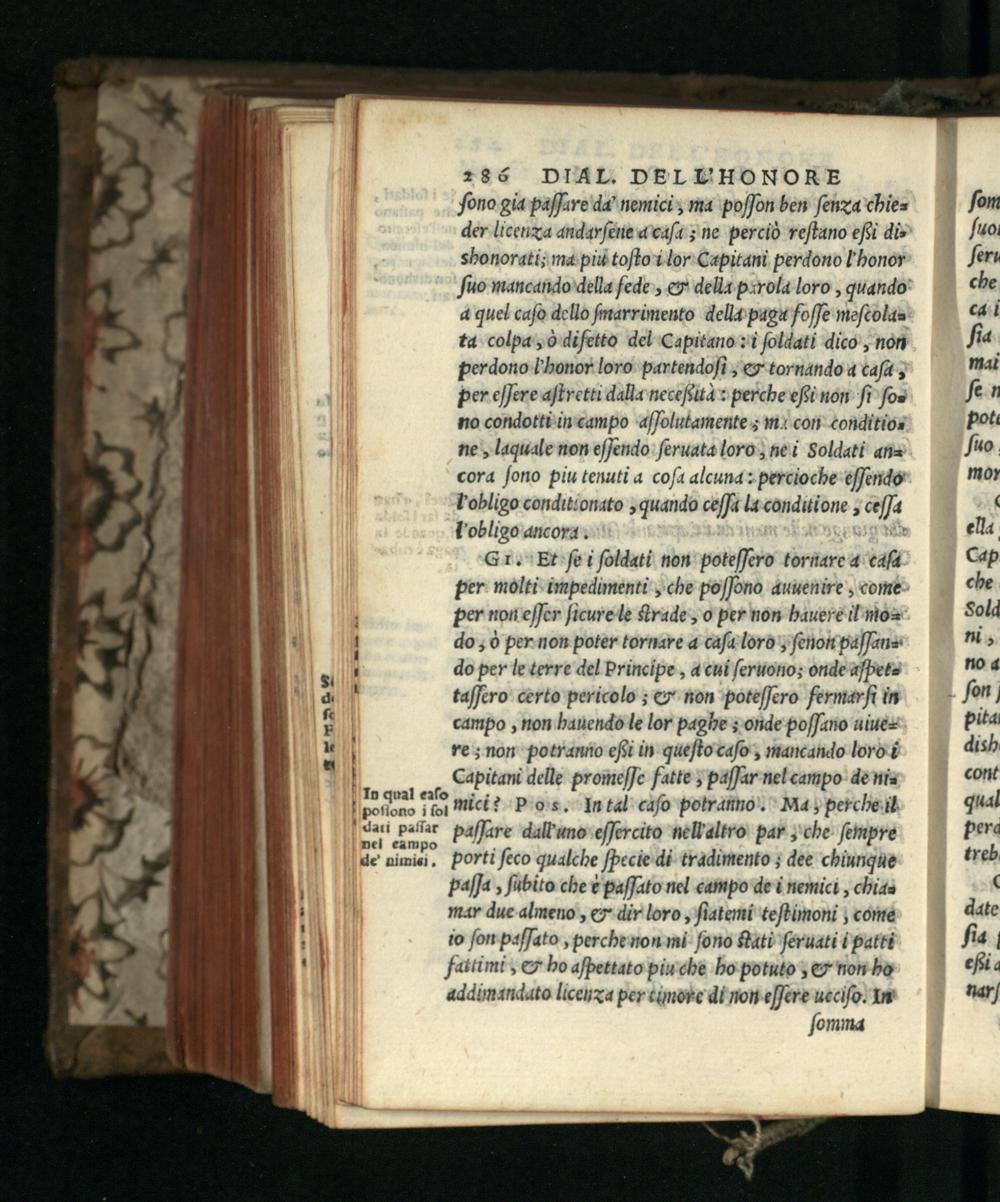 286 DIAL. DELL'HONORE
ſono gia paſſare da' nemici, ma poſſon ben ſenza chie=
der licenza andarſene a caſa; ne perciò reſtano eßi di=
shonorati; ma piu toſto i lor Capitani perdono l'honor
ſuo mancando della fede, & della parola loro, quando
a quel caſo dello ſmarrimento della paga foſſe meſcola=
ta colpa, ò difetto del Capitano: i ſoldati dico, non
perdono l'honor loro partendoſi, & tornando a caſa,
per eſſere aſtretti dalla neceßità: perche eßi non ſi ſo=
no condotti in campo aſſolutamente; ma con conditio=
ne, laquale non eſſendo ſeruata loro, ne i Soldati an=
cora ſono piu tenuti a coſa alcuna: percioche eſſendo
l'obligo conditionato, quando ceſſa la conditione, ceſſa
l'obligo ancora.
GI. Et ſe i ſoldati non poteſſero tornare a caſa
per molti impedimenti, che poſſono auuenire, come
per non eſſer ſicure le ſtrade, o per non hauere il mo=
do, ò per non poter tornare a caſa loro, ſenon paſſan=
do per le terre del Principe, a cui ſeruono; onde aſpet=
taſſero certo pericolo; & non poteſſero fermarſi in
campo, non hauendo le lor paghe; onde poſſano uiue=
re; non potranno eßi in queſto caſo, mancando loro i
Capitani delle promeſſe fatte, paſſar nel campo de ni=
mici? POS. In tal caſo potranno. Ma, perche il
paſſare dall'uno eſſercito nell'altro par, che ſempre
porti ſeco qualche ſpecie di tradimento; dee chiunque
paſſa, ſubito che è paſſato nel campo de i nemici, chia=
mar due almeno, & dir loro, ſiatemi teſtimoni, come
io ſon paſſato, perche non mi ſono ſtati ſeruati i patti
fattimi, & ho aſpettato piu che ho potuto, & non ho
addimandato licenza per timore di non eſſere ucciſo. In
ſomma
In qual caſo
poſſono i ſol
dati paſſar
nel campo
de' nimici.